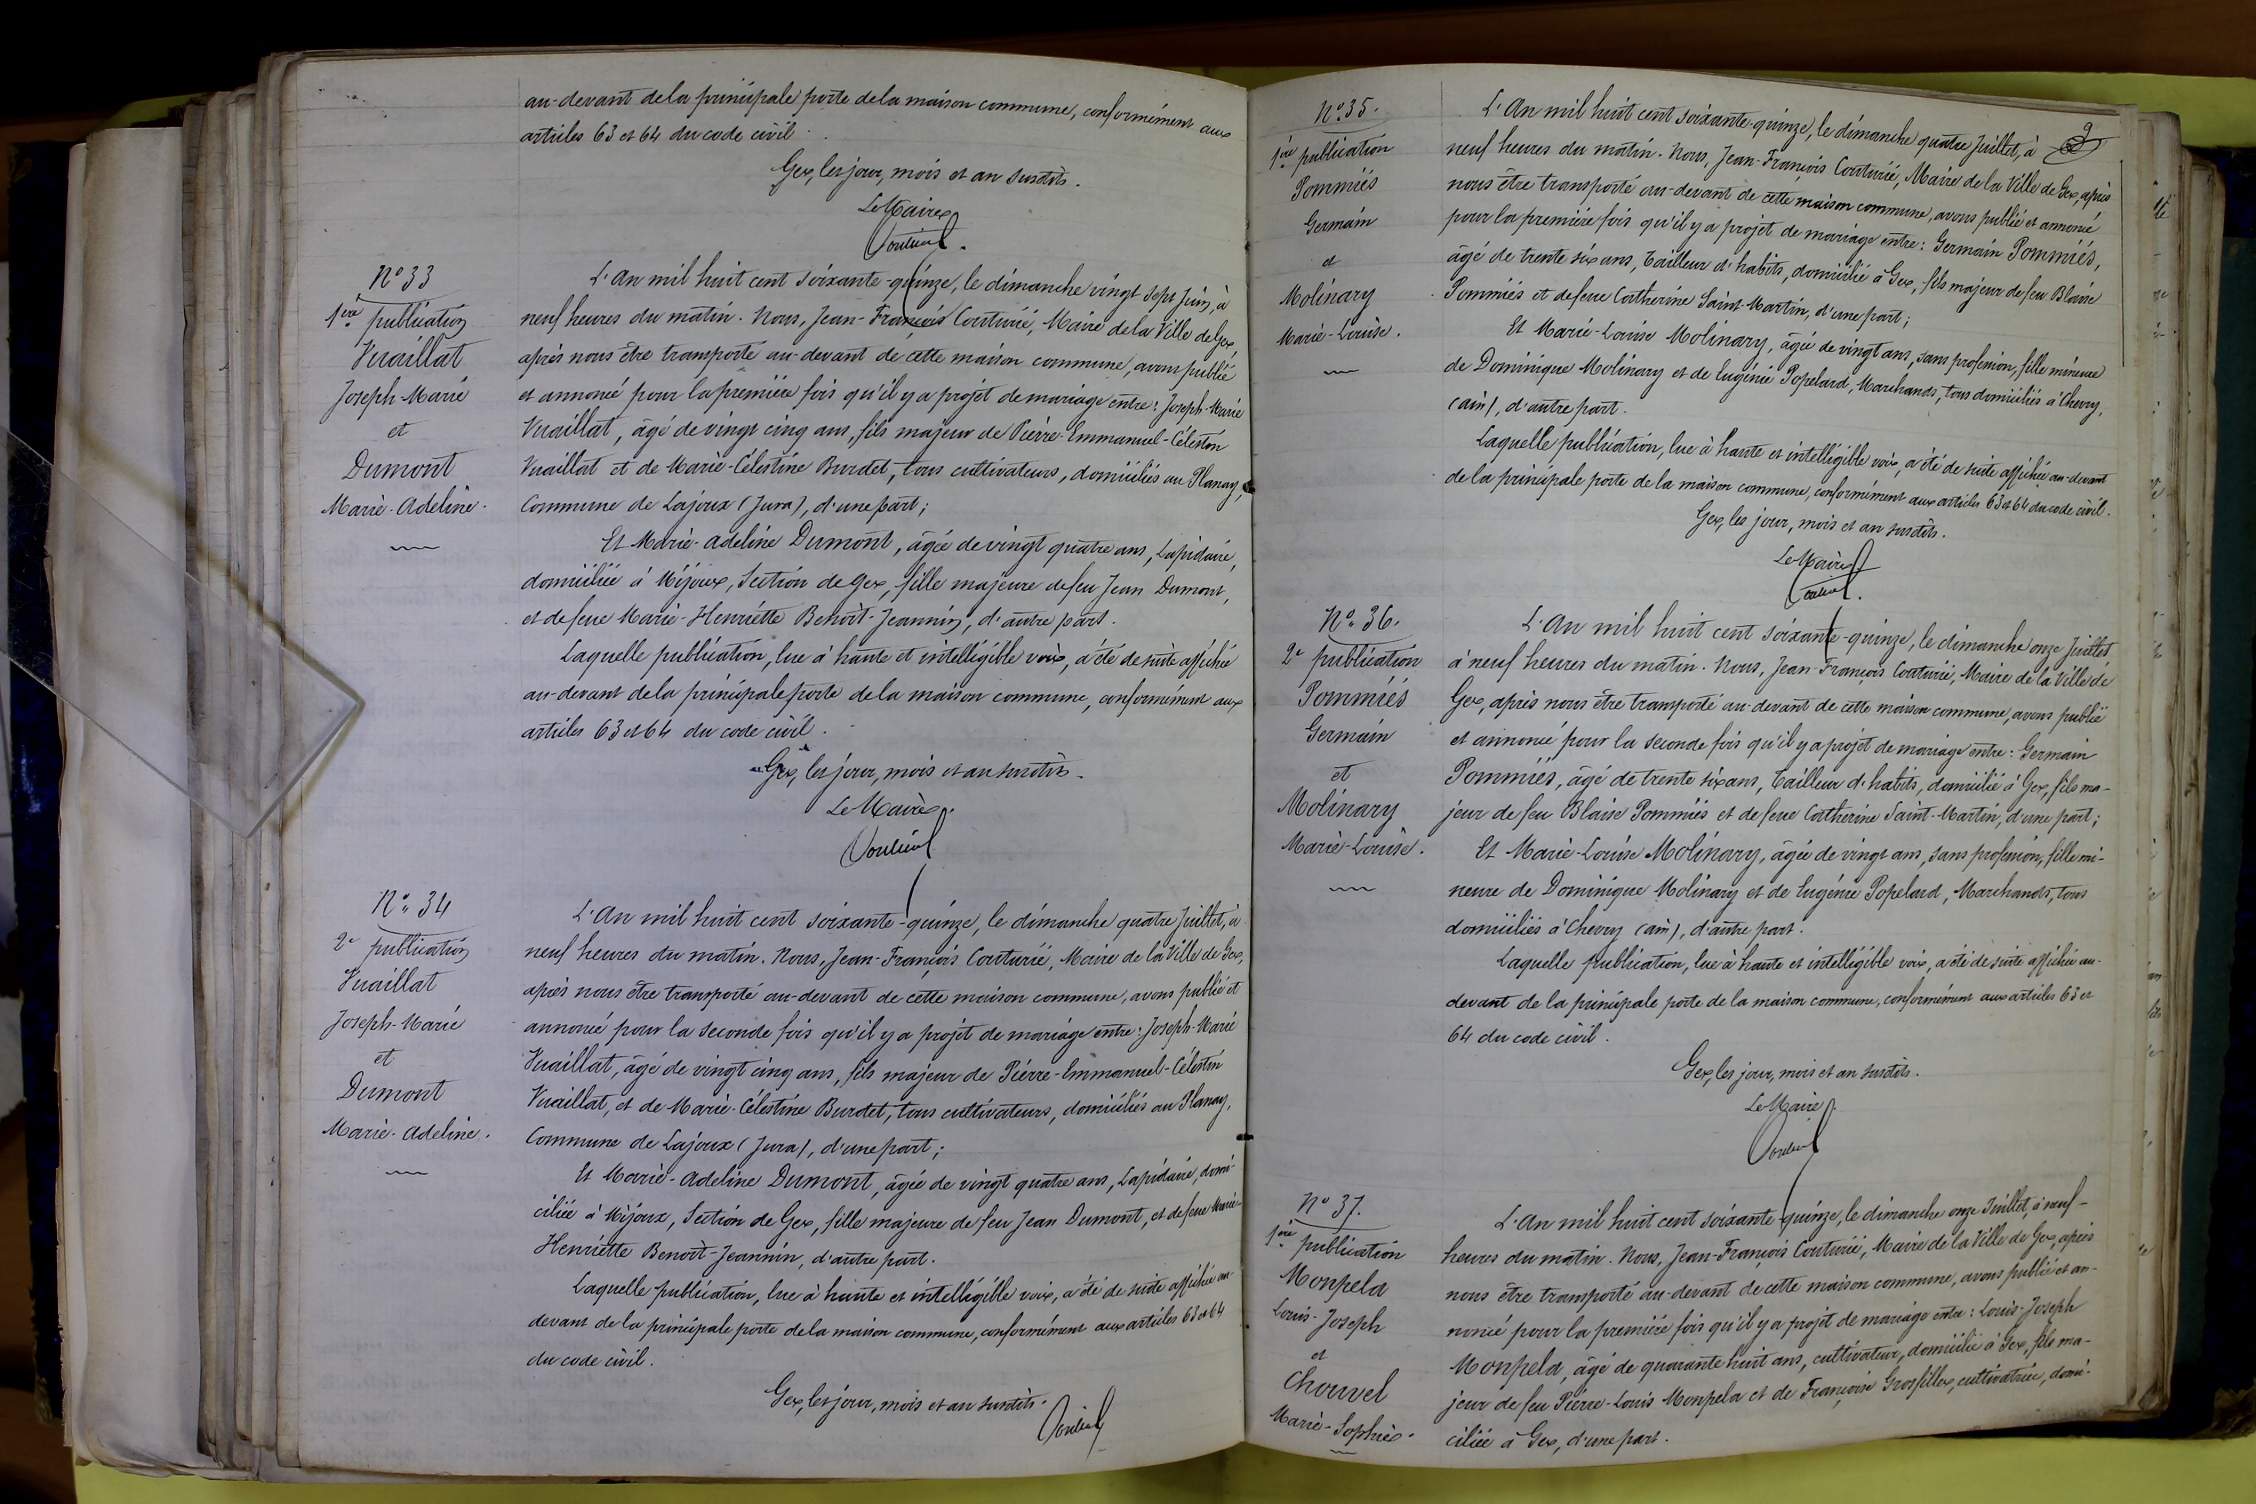 au-devant de la principale porte de la maison commune, conformément aux
articles 63 et 64 du code civil.
Gex, les jour, mois et an susdits.
Le Maire
N° 33
1ère publication
Vuaillat
Joseph-Marie
et
Dumont
Marie-Adeline.
L'An mil huit cent soixante-quinze, le dimanche vingt sept Juin, à
neuf heures du matin. Nous, Jean-François Couturié, Maire de la Ville de Gex,
après nous être transporté au-devant de cette maison commune, avons publié
et annoncé pour la première fois qu'il y a projet de mariage entre: Joseph-Marie
Vuaillat, âgé de vingt cinq ans, fils majeur de Pierre-Emmanuel-Célestin
Vuaillat et de Marie-Célestine Burdet, tous cultivateurs, domiciliés au Planay,
Commune de Lajoux (Jura), d'une part;
Et Marie-Adeline Dumont, âgée de vingt quatre ans, Lapidaire,
domiciliée à Mijoux, Section de Gex, fille majeure de feu Jean Dumont,
et de feue Marie-Henriette Benoît-Jeannin, d'autre part.
Laquelle publication, lue à haute et intelligible voix, a été de suite affichée
au-devant de la principale porte de la maison commune, conformément aux
articles 63 et 64 du code civil.
Gex, les jour, mois et an susdits.
Le Maire.
N° 34
2e publication
Vuaillat
Joseph-Marie
et
Dumont
Marie-Adeline.
L'An mil huit cent soixante-quinze, le dimanche quatre Juillet, à
neuf heures du matin. Nous, Jean-François Couturié, Maire de la Ville de Gex,
après nous être transporté au-devant de cette maison commune, avons publié et
annoncé pour la seconde fois qu'il y a projet de mariage entre: Joseph-Marie
Vuaillat, âgé de vingt cinq ans, fils majeur de Pierre-Emmanuel-Célestin
Vuaillat, et de Marie-Célestine Burdet, tous cultivateurs, domiciliés au Planay,
Commune de Lajoux (Jura), d'une part;
Et Marie-Adeline Dumont, âgée de vingt quatre ans, Lapidaire, domi-
ciliée à Mijoux, Section de Gex, fille majeure de feu Jean Dumont, et de feue Marie-
Henriette Benoît-Jeannin, d'autre part.
Laquelle publication, lue à haute et intelligible voix, a été de suite affichée au-
devant de la principale porte de la maison commune, conformément aux articles 63 et 64
du code civil.
Gex, les jour, mois et an susdits.
9
N° 35.
1ère publication
Pommiés
Germain
et
Molinary
Marie-Louise.
L'An mil huit cent soixante-quinze, le dimanche quatre Juillet, à
neuf heures du matin. Nous, Jean-François Couturié, Maire de la Ville de Gex, après
nous être transporté au-devant de cette maison commune, avons publié et annoncé
pour la première fois qu'il y a projet de mariage entre: Germain Pommiés,
âgé de trente six ans, Tailleur d'habits, domicilié à Gex, fils majeur de feu Blaise
Pommiés et de feue Catherine Saint-Martin, d'une part;
Et Marie-Louise Molinary, âgée de vingt ans, sans profession, fille mineure
de Dominique Molinary et de Eugénie Popelard, Marchands, tous domiciliés à Chevry,
(Ain), d'autre part.
Laquelle publication, lue à haute et intelligible voix, a été de suite affichée au-devant
de la principale porte de la maison commune, conformément aux articles 63 et 64 du code civil.
Gex, les jour, mois et an susdits.
Le Maire
N° 36.
2e publication
Pommiés
Germain
et
Molinary
Marie-Louise.
L'An mil huit cent soixante-quinze, le dimanche onze Juillet
à neuf heures du matin. Nous, Jean-François Couturié, Maire de la Ville de
Gex, après nous être transporté au-devant de cette maison commune, avons publié
et annoncé pour la seconde fois qu'il y a projet de mariage entre: Germain
Pommiés, âgé de trente six ans, Tailleur d'habits, domicilié à Gex, fils ma-
jeur de feu Blaise Pommiés et de feue Catherine Saint-Martin, d'une part;
Et Marie-Louise Molinary, âgée de vingt ans, sans profession, fille mi-
neure de Dominique Molinary et de Eugénie Popelard, Marchands, tous
domiciliés à Chevry (Ain), d'autre part.
Laquelle publication, lue à haute et intelligible voix, a été de suite affichée au-
devant de la principale porte de la maison commune, conformément aux articles 63 et
64 du code civil.
Gex, les jour, mois et an susdits.
Le Maire.
N° 37.
1ère publication
Monpela
Louis-Joseph
et
Chouvel
Marie-Sophie.
L'An mil huit cent soixante-quinze, le dimanche onze Juillet, à neuf-
heures du matin. Nous, Jean-François Couturié, Maire de la Ville de Gex, après
nous être transporté au-devant de cette maison commune, avons publié et an-
noncé pour la première fois qu'il y a projet de mariage entre: Louis-Joseph
Monpela, âgé de quarante huit ans, cultivateur, domicilié à Gex, fils ma-
jeur de feu Pierre-Louis Monpela et de Françoise Grosfillex, cultivatrice, domi-
ciliée à Gex, d'une part.